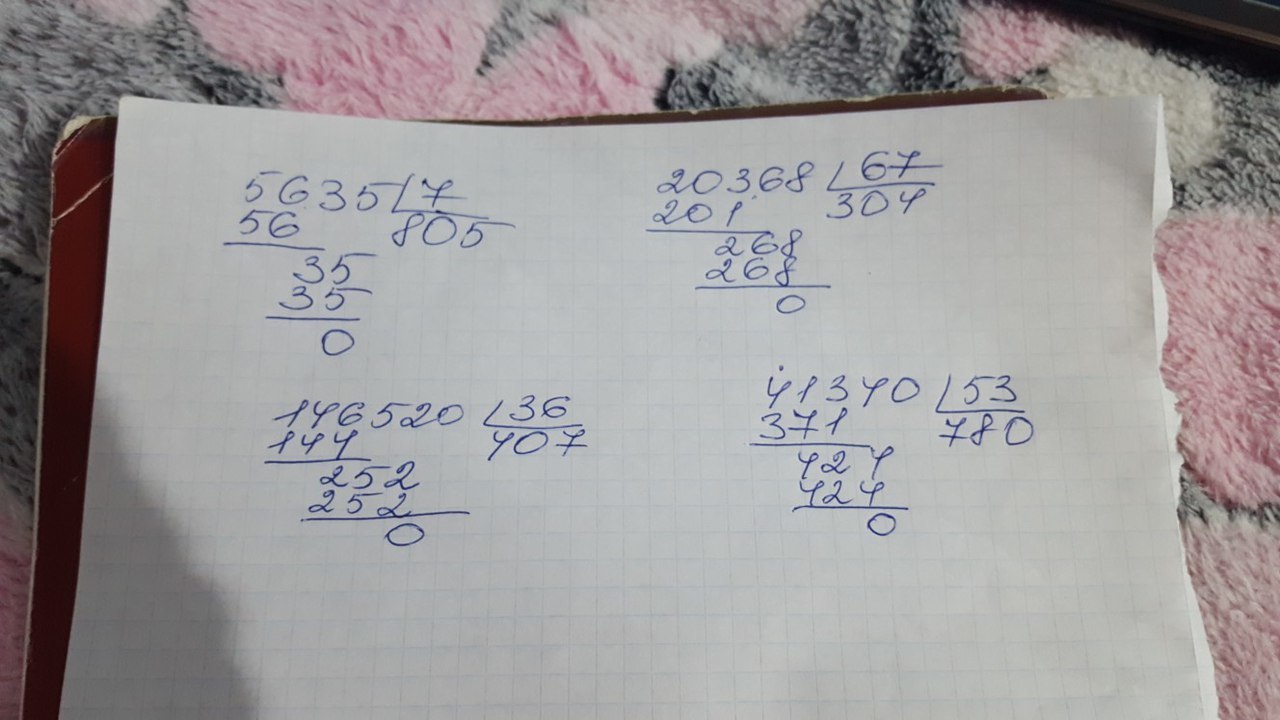 5635 7
56 805
35
35
0
20368 67
201 304
268
268
0
146520 36
144 407
252
252
0
41340 53
371 780
424
424
0